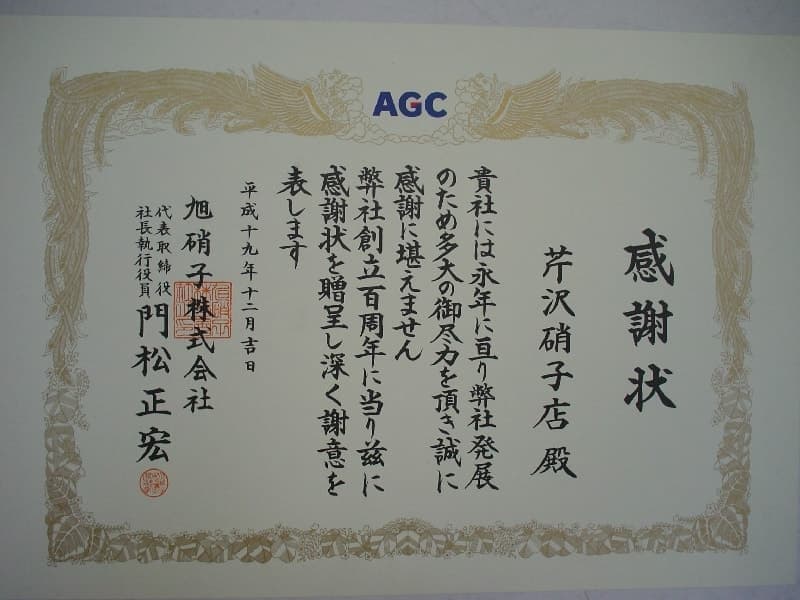 AGC
感謝状
芹沢硝子店 殿
貴社には永年に亘り弊社発展
のため多大の御尽力を頂き誠に
感謝に堪えません
弊社創立百周年に当り茲に
感謝状を贈呈し深く謝意を
表します
平成十九年十二月吉日
旭硝子株式会社
代表取締役
社長執行役員
門松正宏